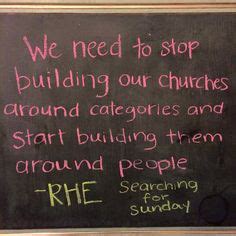 We need to stop
building our churches
around categories and
start building them
around people
-RHE Searching
for
Sunday